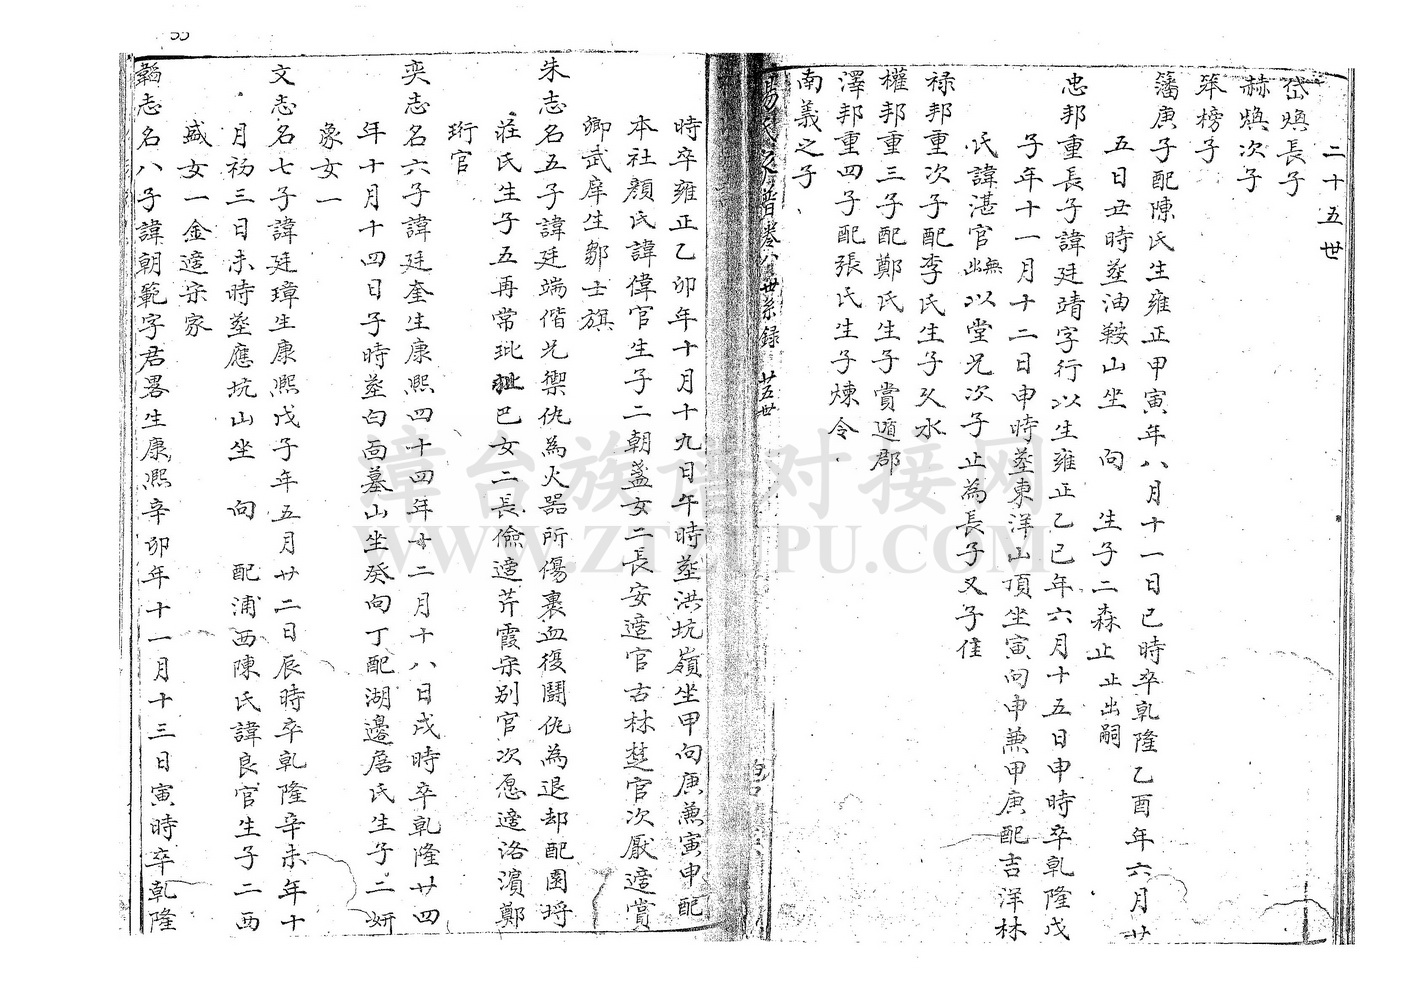 二十五世
岱煥長子
赫煥次子
筞榜子
籓庚子配陳氏生雍正甲寅年八月十一日巳時卒乹隆乙酉年六月廿
五日丑時塟油鞍山坐　向　生子二森止止出嗣
忠邦重長子諱廷靖字行以生雍正乙巳年六月十五日申時卒乹隆戊
子年十一月十二日申時塟東洋山頂坐寅向申兼甲庚配吉洋林
氏諱湛官無出以堂兄次子止為長子又子佳
祿邦重次子配李氏生子夊水
權邦重三子配鄭氏生子賞遁郡
澤邦重四子配張氏生子煉令
南義之子
楊氏家譜卷八世系録　廿五世
時卒雍正乙卯年十月十九日午時塟洪坑嶺坐甲向庚兼寅申配
本社顏氏諱偉官生子二朝盞女二長安適官古林楚官次厭適賞
卿武庠生鄒士旗
朱志名五子諱廷端偕兄禦仇為火器所傷裹血復鬪仇為退却配園埒
莊氏生子五再常玭 巴女二長儉適芹霞宋别官次愿適洛濱鄭
珩官
奕志名六子諱廷奎生康熙四十四年十二月十八日戌時卒乹隆廿四
年十月十四日子時塟白面墓山坐癸向丁配湖邊詹氏生子二妍
象女一
文志名七子諱廷璋生康熙戊子年五月廿二日辰時卒乹隆辛未年十
月初三日未時塟應坑山坐　向　配浦西陳氏諱良官生子二西
盛女一金適宗家
韜志名八子諱朝範字君畧生康熙辛卯年十一月十三日寅時卒乹隆
漳台族谱对接网
WWW.ZTZUPU.COM